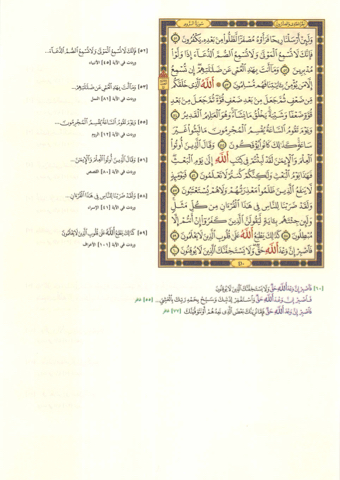 وَلَئِنْ أَرْسَلْنَا رِيحًا فَرَأَوْهُ مُصْفَرًّا لَّظَلُّوا مِنْ بَعْدِهِ يَكْفُرُونَ ٥١
فَإِنَّكَ لَا تُسْمِعُ الْمَوْتَىٰ وَلَا تُسْمِعُ الصُّمَّ الدُّعَاءَ إِذَا وَلَّوْا
مُدْبِرِينَ ٥٢ وَمَا أَنْتَ بِهَادِ الْعُمْيِ عَنْ ضَلَالَتِهِمْ إِنْ تُسْمِعُ
إِلَّا مَنْ يُؤْمِنُ بِآيَاتِنَا فَهُمْ مُسْلِمُونَ ٥٣ اللَّهُ الَّذِي خَلَقَكُمْ
مِنْ ضَعْفٍ ثُمَّ جَعَلَ مِنْ بَعْدِ ضَعْفٍ قُوَّةً ثُمَّ جَعَلَ مِنْ بَعْدِ
قُوَّةٍ ضَعْفًا وَشَيْبَةً يَخْلُقُ مَا يَشَاءُ وَهُوَ الْعَلِيمُ الْقَدِيرُ ٥٤
وَيَوْمَ تَقُومُ السَّاعَةُ يُقْسِمُ الْمُجْرِمُونَ مَا لَبِثُوا غَيْرَ
سَاعَةٍ كَذَٰلِكَ كَانُوا يُؤْفَكُونَ ٥٥ وَقَالَ الَّذِينَ أُوتُوا
الْعِلْمَ وَالْإِيمَانَ لَقَدْ لَبِثْتُمْ فِي كِتَابِ اللَّهِ إِلَىٰ يَوْمِ الْبَعْثِ
فَهَٰذَا يَوْمُ الْبَعْثِ وَلَٰكِنَّكُمْ كُنْتُمْ لَا تَعْلَمُونَ ٥٦ فَيَوْمَئِذٍ
لَا يَنْفَعُ الَّذِينَ ظَلَمُوا مَعْذِرَتُهُمْ وَلَا هُمْ يُسْتَعْتَبُونَ ٥٧
وَلَقَدْ ضَرَبْنَا لِلنَّاسِ فِي هَٰذَا الْقُرْآنِ مِنْ كُلِّ مَثَلٍ
وَلَئِنْ جِئْتَهُمْ بِآيَةٍ لَيَقُولَنَّ الَّذِينَ كَفَرُوا إِنْ أَنْتُمْ إِلَّا
مُبْطِلُونَ ٥٨ كَذَٰلِكَ يَطْبَعُ اللَّهُ عَلَىٰ قُلُوبِ الَّذِينَ لَا يَعْلَمُونَ ٥٩
فَاصْبِرْ إِنَّ وَعْدَ اللَّهِ حَقٌّ وَلَا يَسْتَخِفَّنَّكَ الَّذِينَ لَا يُوقِنُونَ ٦٠
[٥٢] فَإِنَّكَ لَا تُسْمِعُ الْمَوْتَىٰ وَلَا تُسْمِعُ الصُّمَّ الدُّعَاءَ...
[٥٣] وَمَا أَنْتَ بِهَادِ الْعُمْيِ عَنْ ضَلَالَتِهِمْ...
[٥٥] وَيَوْمَ تَقُومُ السَّاعَةُ يُقْسِمُ الْمُجْرِمُونَ...
[٥٦] وَقَالَ الَّذِينَ أُوتُوا الْعِلْمَ وَالْإِيمَانَ...
[٥٨] وَلَقَدْ ضَرَبْنَا لِلنَّاسِ فِي هَٰذَا الْقُرْآنِ...
[٥٩] كَذَٰلِكَ يَطْبَعُ اللَّهُ عَلَىٰ قُلُوبِ الَّذِينَ لَا يَعْلَمُونَ
وردت في الآية [١٠١] الأعراف
[٦٠] فَاصْبِرْ إِنَّ وَعْدَ اللَّهِ حَقٌّ وَلَا يَسْتَخِفَّنَّكَ الَّذِينَ لَا يُوقِنُونَ
فَاصْبِرْ إِنَّ وَعْدَ اللَّهِ حَقٌّ وَاسْتَغْفِرْ لِذَنْبِكَ وَسَبِّحْ بِحَمْدِ رَبِّكَ بِالْعَشِيِّ... [٥٥] غافر
فَاصْبِرْ إِنَّ وَعْدَ اللَّهِ حَقٌّ فَإِمَّا نُرِيَنَّكَ بَعْضَ الَّذِي نَعِدُهُمْ أَوْ نَتَوَفَّيَنَّكَ [٧٧] غافر